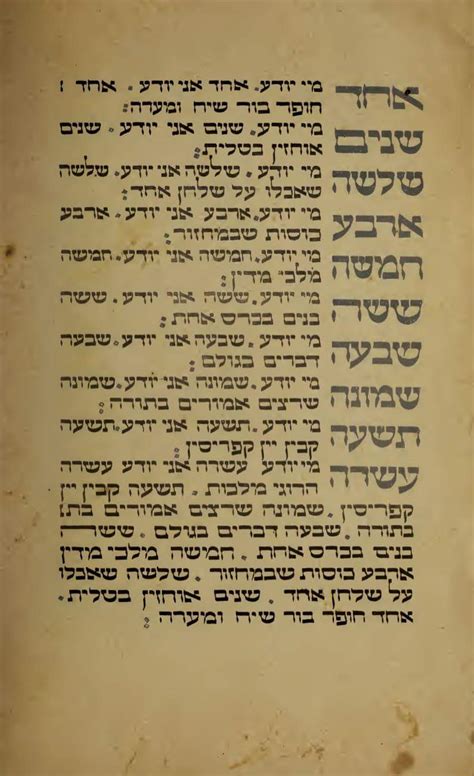 אחד מי יודע. אחד אני יודע. אחד
חופר בור שיח ומערה:
שנים מי יודע. שנים אני יודע. שנים
אוחזין בטלית:
שלשה מי יודע. שלשה אני יודע. שלשה
שאכלו על שלחן אחד:
ארבע מי יודע. ארבע אני יודע. ארבע
כוסות שבמחזור:
חמשה מי יודע. חמשה אני יודע. חמשה
מלכי מדין:
ששה מי יודע. ששה אני יודע. ששה
בנים בכרס אחת:
שבעה מי יודע. שבעה אני יודע. שבעה
דברים בגולם:
שמונה מי יודע. שמונה אני יודע. שמונה
שרצים אמורים בתורה:
תשעה מי יודע. תשעה אני יודע. תשעה
קבין יין קפריסין:
עשרה מי יודע עשרה אני יודע עשרה
הרוגי מלכות. תשעה קבין יין
קפריסין. שמונה שרצים אמורים בת
בתורה. שבעה דברים בגולם. ששה
בנים בכרס אחת. חמשה מלכי מדין
ארבע כוסות שבמחזור. שלשה שאכלו
על שלחן אחד. שנים אוחזין בטלית.
אחד חופר בור שיח ומערה: